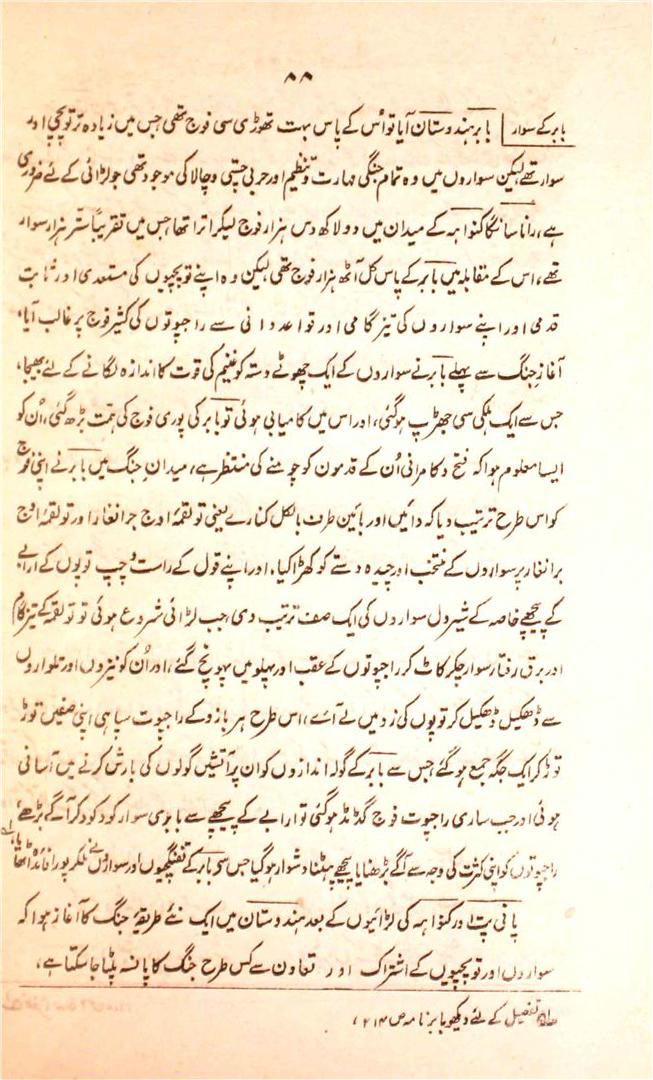 ۸۸
بابر کے سوار | بابر ہندوستان آیا تو اُس کے پاس بہت تھوڑی سی فوج تھی جس میں زیادہ تر توپچی اور
سوار تھے لیکن سواروں میں وہ تمام جنگی مہارت و تنظیم اور حربی چستی و چالاکی موجود تھی جو لڑائی کے لئے ضروری
ہے، رانا سانگا کنواہہ کے میدان میں دو لاکھ دس ہزار فوج لیکر اترا تھا جس میں تقریباً ستر ہزار سوار
تھے، اس کے مقابلہ میں بابر کے پاس کل آٹھ ہزار فوج تھی لیکن وہ اپنے توپچیوں کی مستعدی اور ثابت
قدمی اور اپنے سواروں کی تیز گامی اور قواعد دانی سے راجپوتوں کی کثیر فوج پر غالب آیا،
آغاز جنگ سے پہلے بابر نے سواروں کے ایک چھوٹے دستہ کو غنیم کی قوت کا اندازہ لگانے کے لئے بھیجا،
جس سے ایک ہلکی سی جھڑپ ہوگئی، اور اس میں کامیابی ہوئی تو بابر کی پوری فوج کی ہمت بڑھ گئی، اُن کو
ایسا معلوم ہوا کہ فتح و کامرانی اُن کے قدموں کو چومنے کی منتظر ہے، میدانِ جنگ میں بابر نے اپنی فوج
کو اس طرح ترتیب دیا کہ دائیں اور بائین طرف بالکل کنارے یعنی تولقمۂ اوج جرانغار اور تولقمۂ اوج
برانغار پر سواروں کے منتخب اور چیدہ دستے کو کھڑا کیا، اور اپنے قول کے راست و چپ توپوں کے ارابے
کے پیچھے خاصہ کے شیردل سواروں کی ایک صف ترتیب دی جب لڑائی شروع ہوئی تو تولقمہ کے تیز گام
اور برق رفتار سوار چکر کاٹ کر راجپوتوں کے عقب اور پہلو میں پہونچ گئے، اور اُن کو نیزوں اور تلواروں
سے ڈھکیل ڈھکیل کر توپوں کی زد میں لے آئے، اس طرح ہر بازو کے راجپوت سپاہی اپنی صفیں توڑ
توڑ کر ایک جگہ جمع ہو گئے جس سے بابر کے گولہ اندازوں کو ان پر آتشیں گولوں کی بارش کرنے میں آسانی
ہوئی اور جب ساری راجپوت فوج گڈمڈ ہوگئی تو ارابے کے پیچھے سے بابری سوار کود کود کر آگے بڑھے
راجپوتوں کو اپنی کثرت کی وجہ سے آگے بڑھنا یا پیچھے ہٹنا دشوار ہو گیا جس سے بابر کے تفنگچیوں اور سواروں نے ملکر پورا فائدہ اٹھایا،
پانی پت اور کنواہہ کی لڑائیوں کے بعد ہندوستان میں ایک نئے طریقۂ جنگ کا آغاز ہوا کہ
سواروں اور توپچیوں کے اشتراک اور تعاون سے کس طرح جنگ کا پانسہ پلٹا جا سکتا ہے،
تفصیل کے لئے دیکھو بابر نامہ ص ۲۱۴،